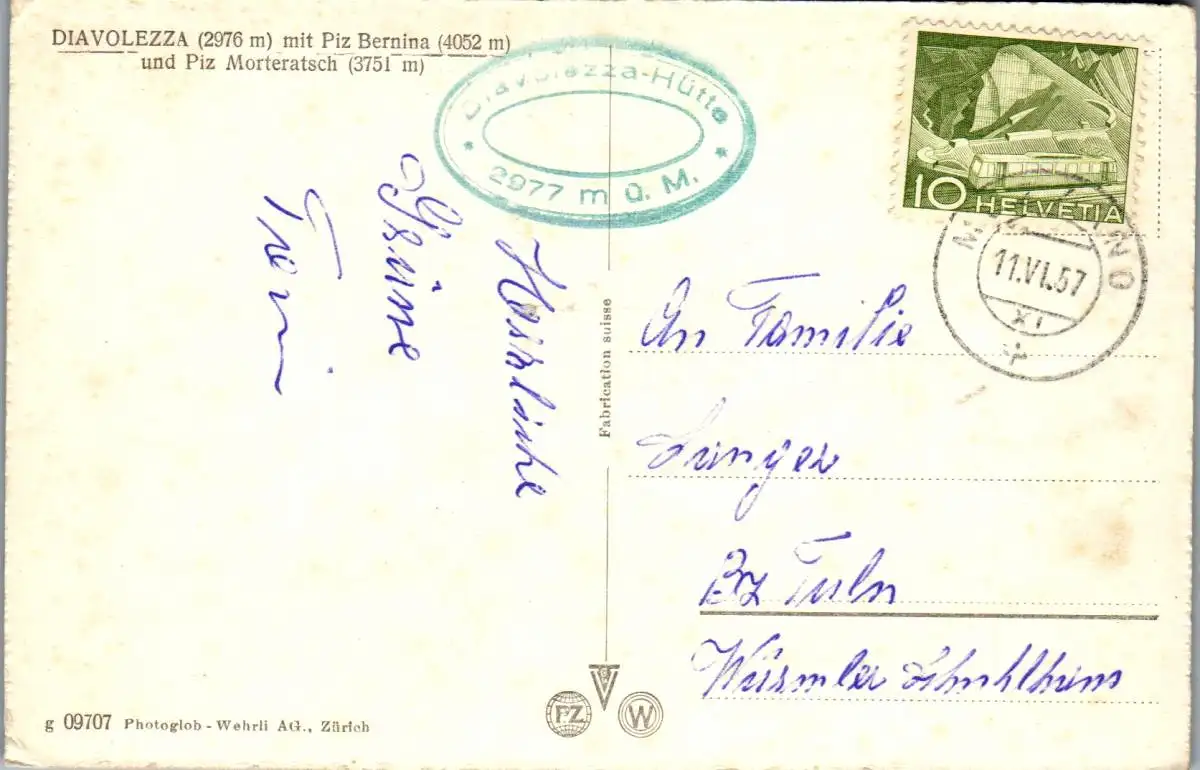 DIAVOLEZZA (2976 m) mit Piz Bernina (4052 m)
und Piz Morteratsch (3751 m)
Diavolezza-Hütte
* *
2977 m ü. M.
10 HELVETIA
11.VI.57
XI
Herzliche
Grüsse
Toni
Fabrication suisse
An Familie
Bz Tuln
PZ
W
g 09707 Photoglob-Wehrli AG., Zürich